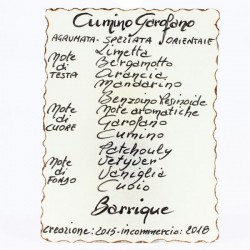 Cumino Garofano
AGRUMATA-SPEZIATA ORIENTALE
Note di TESTA
Limetta
Bergamotto
Arancia
Mandarino
Note di CUORE
Benzoino Resinoide
Note aromatiche
Garofano
Cumino
Note di FONDO
Patchouly
Vetyver
Vaniglia
Cuoio
Barrique
creazione:2015-incommercio:2018